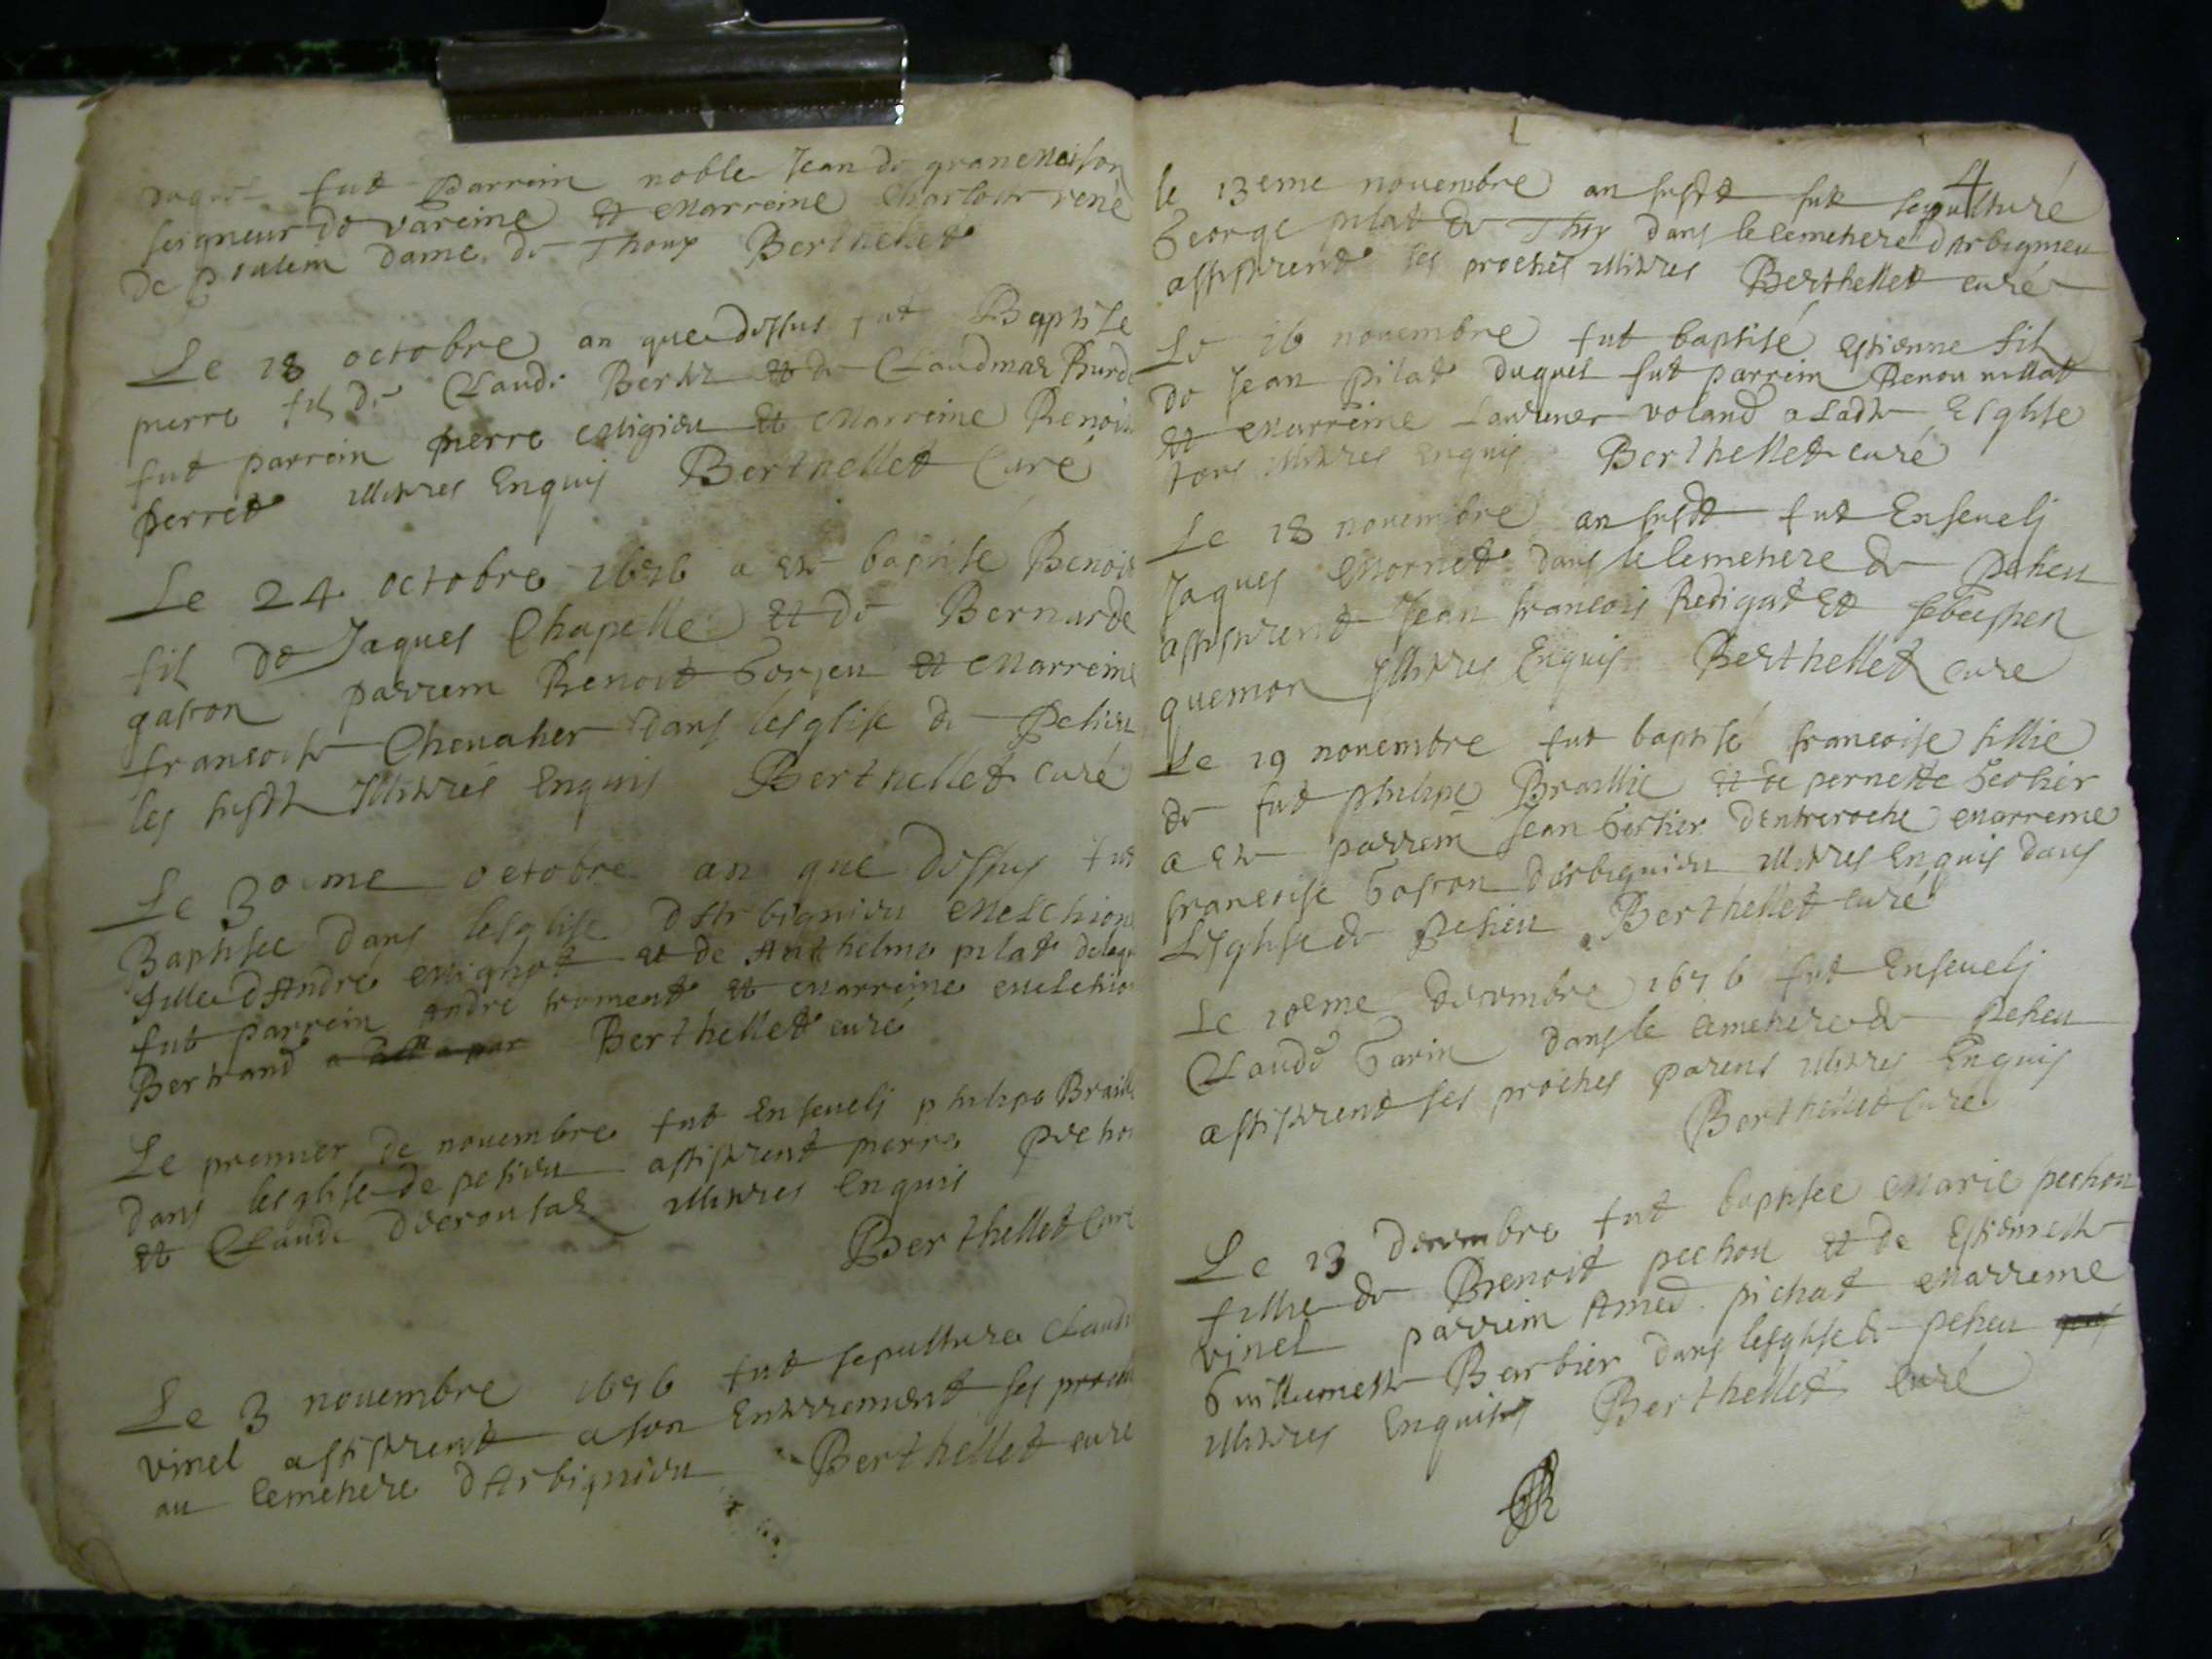 duquel fut parrein noble Jean de granmaison
seigneur de vareine et marreine Charlotte rené
de poulein dame de Thouy Berthellet
Le 18 octobre an que dessus fut Baptise
pierre fil de Claude et de Claudmaz Burde
fut parrein pierre migieu et marreine Benoite
perret enquis Berthellet Curé
Le 24 octobre 1676 a este baptise Benoit
fil de Jaques Chapelle et de Bernarde
gaston parrein Benoit Gorjeu et marreine
francoise Chevalier dans lesglise de Pesieu
les susdts enquis Berthellet curé
Le 30 me octobre an que dessus fut
Baptisee dans lesglise dArbignieu melchion
fille dAndré mignot et de Anthelme pilat delaq
fut parrein andre froment et marreine melchion
Bertrand a Berthellet curé
Le premier de novembre fut Ensevelj philipe Braill
dans lesglise de pesieu assistirent pierre
et Claude enquis
Berthellet Curé
Le 3 novembre 1676 fut sepulture Claude
vinel assistirent a son Enterrement ses proch
au cemetiere dArbignieu Berthellet curé
4
le 13eme novembre an susdt fut sepulturé
George pilat de Thoy dans le cemetiere darbignieu
assistirent ses proches Berthellet curé
Le 16 novembre fut baptisé Estienne fil
de Jean Pilat duquel fut parrein Benoit millat
et marreine voland a ladte Esglise
tous enquis Berthellet curé
Le 18 novembre an susdt fut Ensevelj
Jaques mornet dans le cemetiere de Pesieu
assistirent Jean francois Redigat et sebastien
quemon Enquis Berthellet curé
Le 19 novembre fut baptisé francoise fillie
de fut philipe Braillie et de pernette Gerlier
a este parrein Jean Gerlier dentreroche marreine
francoise Gaston darbignieu enquis dans
Lesglise de Pesieu Berthellet curé
Le 10eme decembre 1676 fut Ensevelj
Claude Garin dans le cemetiere de Pesieu
assistirent ses proches parens Enquis
Berthellet Curé
Le 13 decembre fut baptisee marie pechon
fillie de Benoit pechon et de Estiennette
vinel parrein Amed pichat marreine
Guillumette Barbier dans lesglise de pesieu
Enquis Berthellet curé